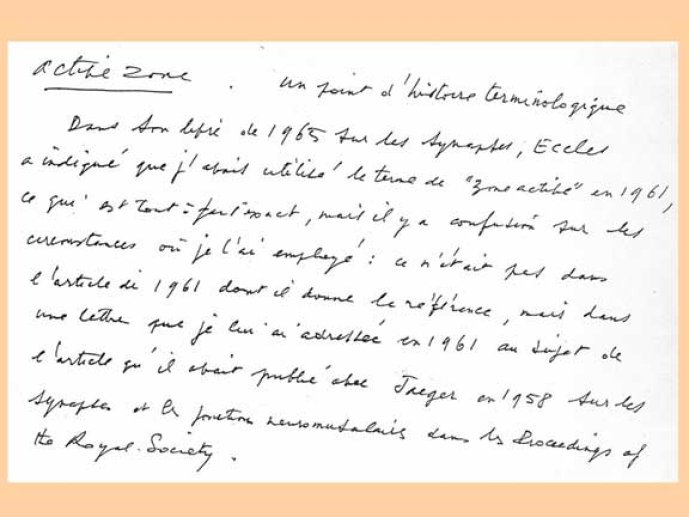 active zone . un point d'histoire terminologique
Dans son livre de 1965 sur les synapses, Eccles
a indiqué que j'avais utilisé le terme de "zone active" en 1961,
ce qui est tout à fait exact, mais il y a confusion sur les
circonstances où je l'ai employé : ce n'était pas dans
l'article de 1961 dont il donne la référence, mais dans
une lettre que je lui ai adressée en 1961 au sujet de
l'article qu'il avait publié avec Jaeger en 1958 sur les
synapses et les jonctions neuromusculaires dans les Proceedings of
the Royal Society.